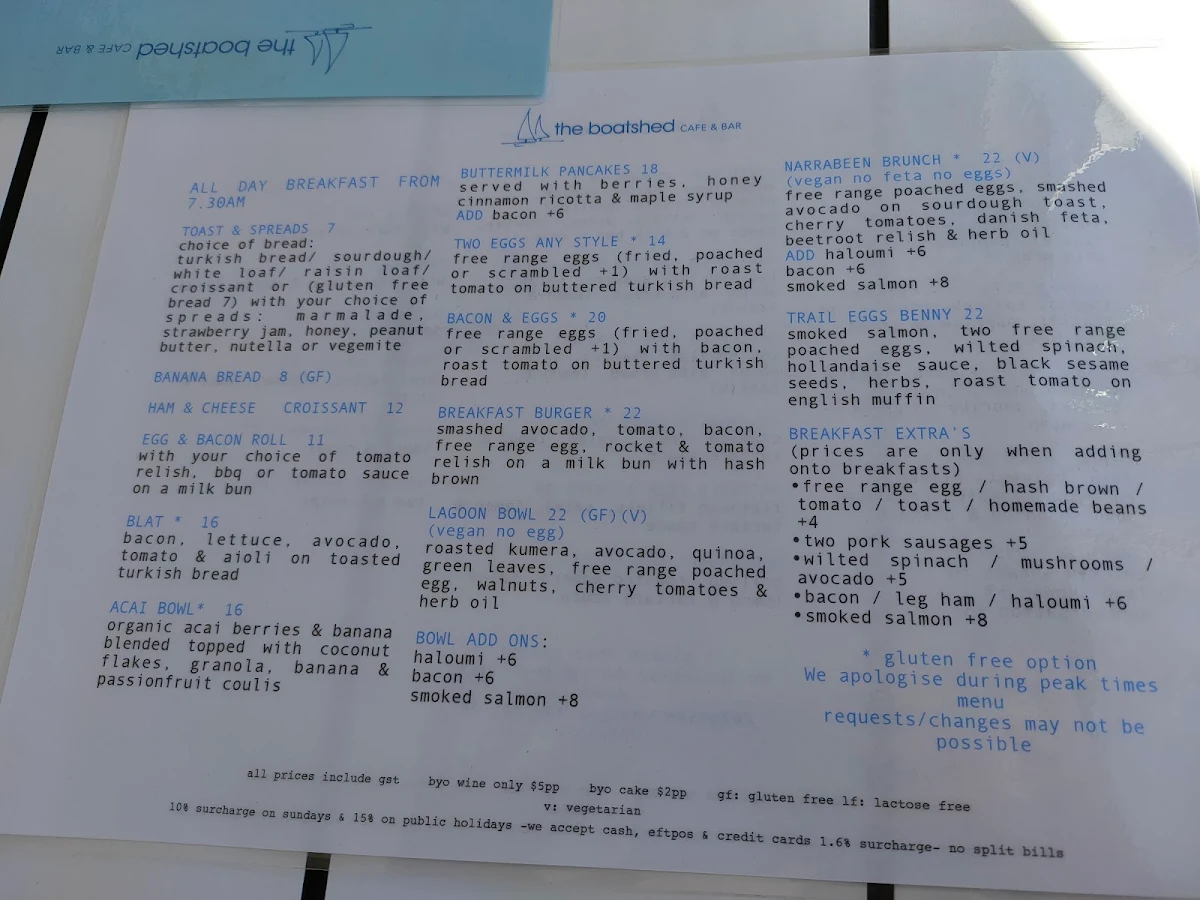 the boatshed CAFE & BAR
the boatshed CAFE & BAR
ALL DAY BREAKFAST FROM
7.30AM
TOAST & SPREADS 7
choice of bread:
turkish bread/ sourdough/
white loaf/ raisin loaf/
croissant or (gluten free
bread 7) with your choice of
spreads: marmalade,
strawberry jam, honey, peanut
butter, nutella or vegemite
BANANA BREAD 8 (GF)
HAM & CHEESE CROISSANT 12
EGG & BACON ROLL 11
with your choice of tomato
relish, bbq or tomato sauce
on a milk bun
BLAT * 16
bacon, lettuce, avocado,
tomato & aioli on toasted
turkish bread
ACAI BOWL* 16
organic acai berries & banana
blended topped with coconut
flakes, granola, banana &
passionfruit coulis
BUTTERMILK PANCAKES 18
served with berries, honey
cinnamon ricotta & maple syrup
ADD bacon +6
TWO EGGS ANY STYLE * 14
free range eggs (fried, poached
or scrambled +1) with roast
tomato on buttered turkish bread
BACON & EGGS * 20
free range eggs (fried, poached
or scrambled +1) with bacon,
roast tomato on buttered turkish
bread
BREAKFAST BURGER * 22
smashed avocado, tomato, bacon,
free range egg, rocket & tomato
relish on a milk bun with hash
brown
LAGOON BOWL 22 (GF)(V)
(vegan no egg)
roasted kumera, avocado, quinoa,
green leaves, free range poached
egg, walnuts, cherry tomatoes &
herb oil
BOWL ADD ONS:
haloumi +6
bacon +6
smoked salmon +8
NARRABEEN BRUNCH * 22 (V)
(vegan no feta no eggs)
free range poached eggs, smashed
avocado on sourdough toast,
cherry tomatoes, danish feta,
beetroot relish & herb oil
ADD haloumi +6
bacon +6
smoked salmon +8
TRAIL EGGS BENNY 22
smoked salmon, two free range
poached eggs, wilted spinach,
hollandaise sauce, black sesame
seeds, herbs, roast tomato on
english muffin
BREAKFAST EXTRA'S
(prices are only when adding
onto breakfasts)
•free range egg / hash brown /
tomato / toast / homemade beans
+4
•two pork sausages +5
•wilted spinach / mushrooms /
avocado +5
•bacon / leg ham / haloumi +6
•smoked salmon +8
* gluten free option
We apologise during peak times
menu
requests/changes may not be
possible
all prices include gst byo wine only $5pp byo cake $2pp gf: gluten free lf: lactose free
v: vegetarian
10% surcharge on sundays & 15% on public holidays -we accept cash, eftpos & credit cards 1.6% surcharge- no split bills